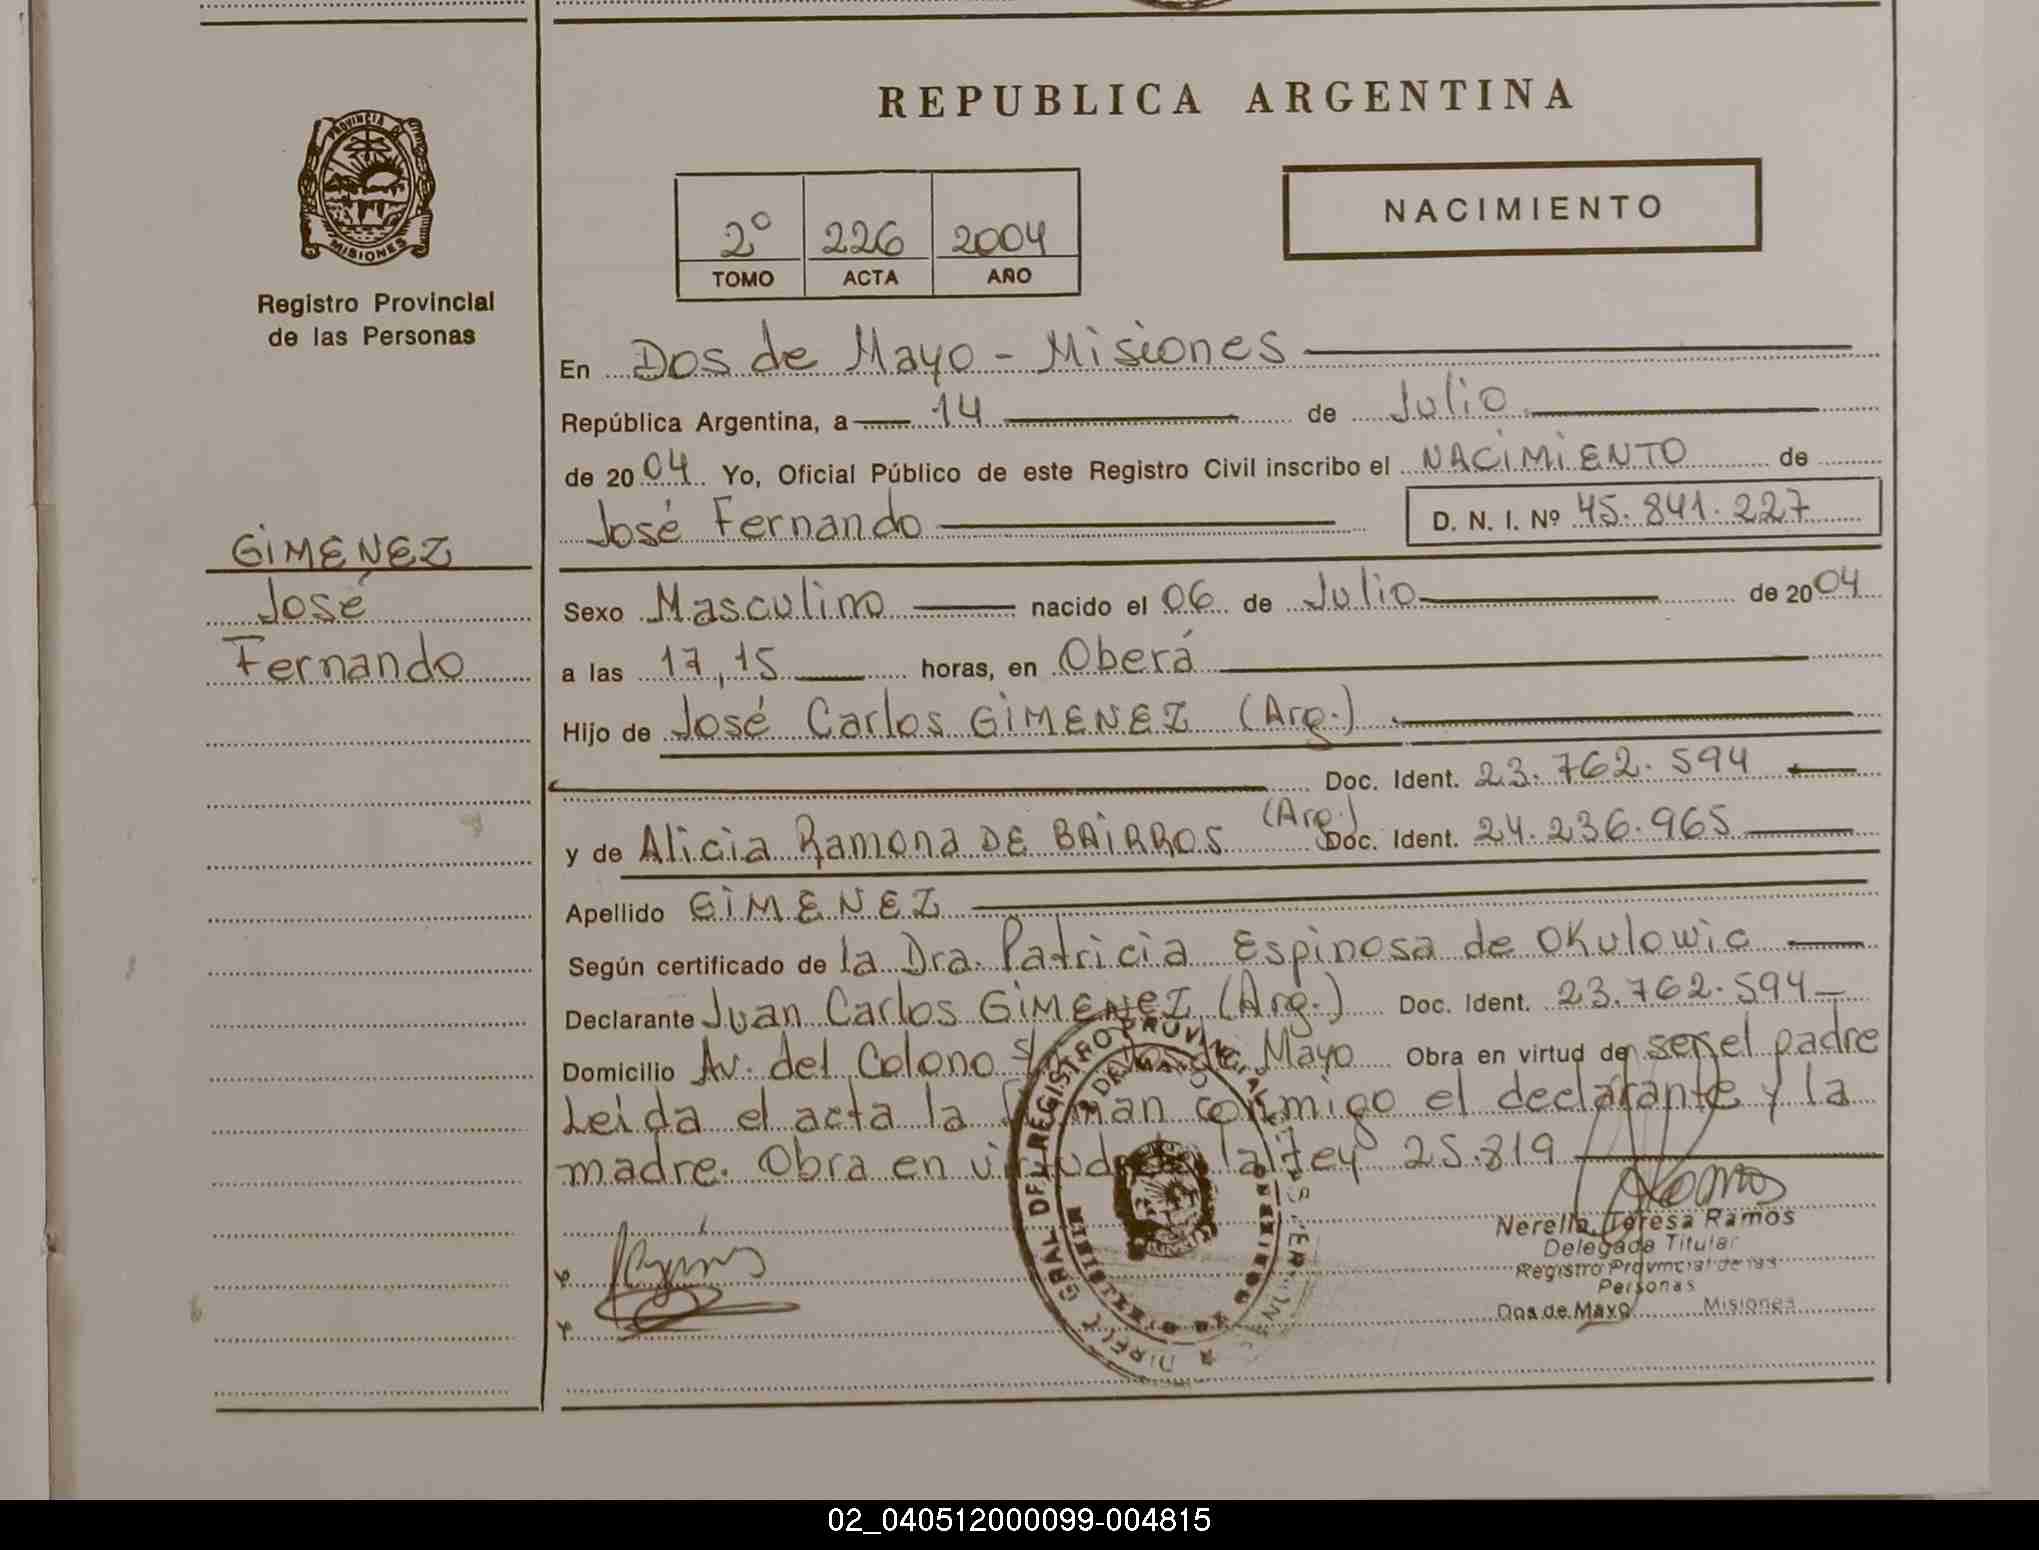 REPUBLICA ARGENTINA
PROVINCIA DE
MISIONES
Registro Provincial
de las Personas
2º 226 2004
TOMO ACTA AÑO
NACIMIENTO
En Dos de Mayo - Misiones
República Argentina, a 14 de Julio
de 2004 Yo, Oficial Público de este Registro Civil inscribo el NACIMIENTO de
José Fernando D. N. I. Nº 45.841.227
GIMENEZ
José
Fernando
Sexo Masculino nacido el 06 de Julio de 2004
a las 17,15 horas, en Oberá
Hijo de José Carlos GIMENEZ (Arg.)
Doc. Ident. 23.762.594
y de Alicia Ramona DE BAIRROS (Arg.) Doc. Ident. 24.236.965
Apellido GIMENEZ
Según certificado de la Dra. Patricia Espinosa de OKulowic
Declarante Juan Carlos GIMENEZ (Arg.) Doc. Ident. 23.762.594
Domicilio Av. del Colono Mayo Obra en virtud de ser el padre
Leida el acta la firman conmigo el declarante y la
madre. Obra en virtud de la Ley 25.819
Nerella Teresa Ramos
Delegada Titular
Registro Provincial de las
Personas
Dos de Mayo Misiones
02_040512000099-004815